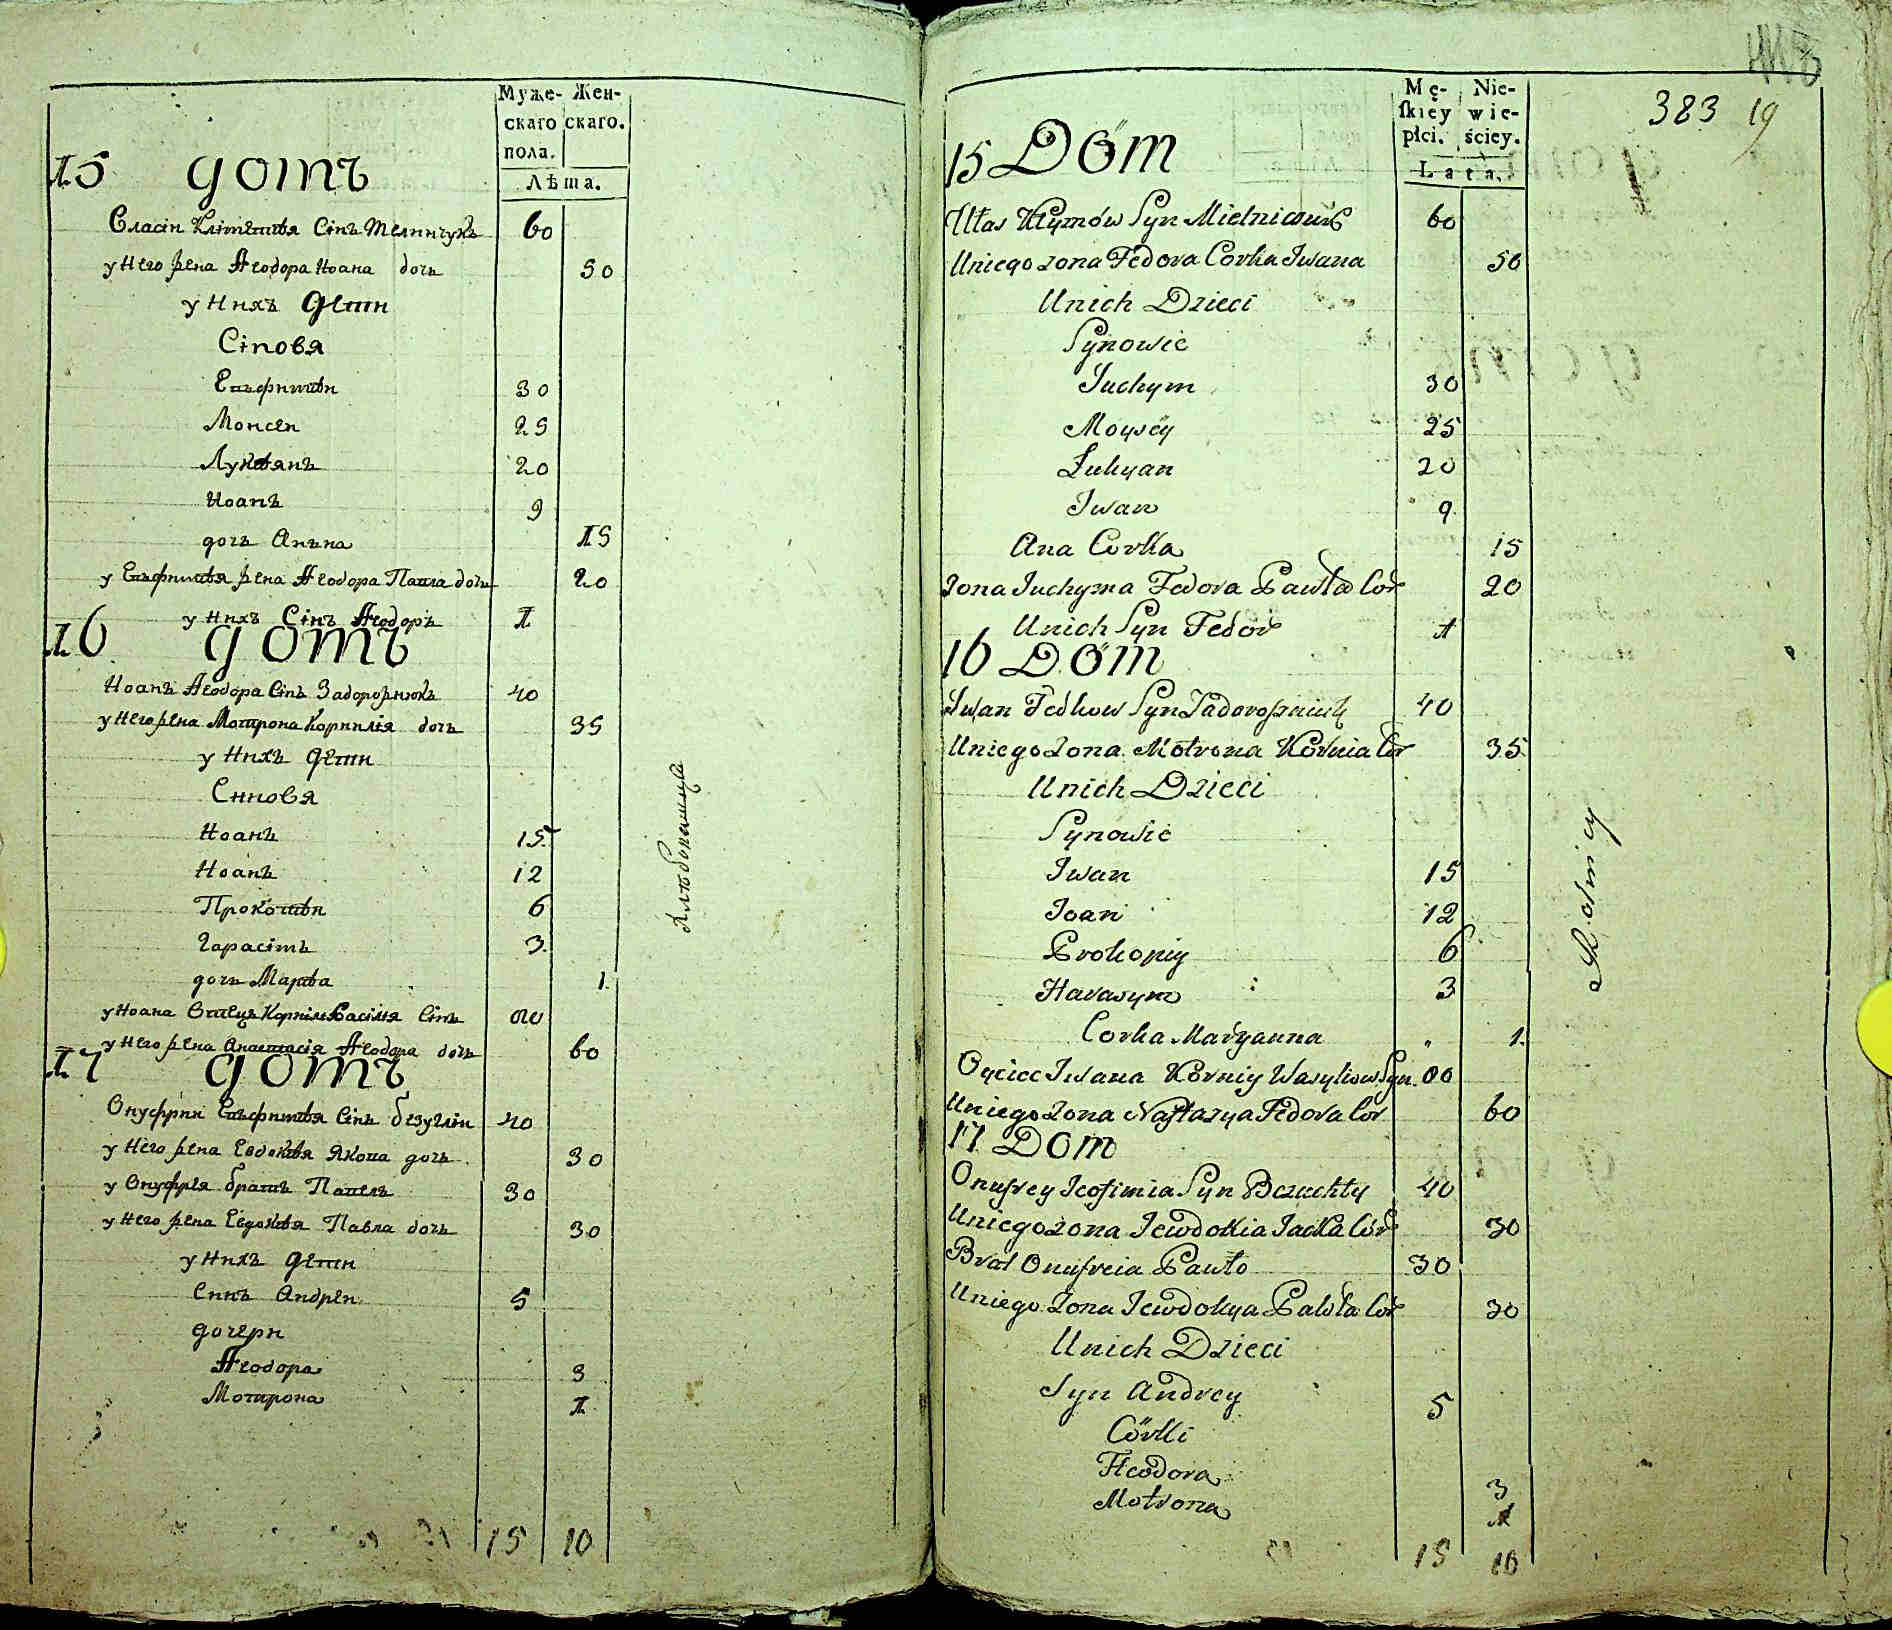 Муже- Жен-
скаго скаго.
пола.
Лѣта.
15 домъ
Сласій Кліментія Сінъ Мелничукъ 60
у Него жена Ѳеодора Иоана дочь 50
у Нихъ Дети
Сіновя
Евъфимѣи 30
Моисей 25
Лукіянъ 20
Иоанъ 9
дочь Анъна 15
у Евъфимія жена Ѳеодора Павла дочь 20
у Нихъ Сінъ Ѳеодоръ 1
16 домъ
Иоанъ Ѳеодора Сінъ Задорожнюкъ 40
у Него жена Мотрона Корнилія дочь 35
у Нихъ Дети
Синовя
Иоанъ 15
Иоанъ 12
Прокопѣи 6
Гарасімъ 3
дочь Марѣа 1
у Иоана Отецъ Корніл Василія Сінъ
у Него жена Анастасія Ѳеодора дочь 60
17 домъ
Онуфрій Евъфимія Сінъ безуглій 40
у Него жена Евдокія Якова дочь 30
у Онуфрія братъ Павелъ 30
у Него жена Евдокія Павла дочь 30
у Нихъ Дети
Синъ Андрей 5
дочери
Ѳеодора 3
Мотрона 1
15 10
Mę- Nie-
ſkiey wie-
płci. ściey.
Lata.
383 19
15 Dóm
Ułas Klymów Syn Mielniczuk 60
Uniego zona Fedora Corka Iwana 50
Unich Dzieci
Synowie
Juchym 30
Moysey 25
Łukyan 20
Iwan 9
Ana Corka 15
Zona Juchyma Fedora Pawła Cór 20
Unich Syn Fedor 1
16 Dóm
Iwan Fedkow Syn Zadorożniuk 40
Uniego Zona Motrona Kornia Cór 35
Unich Dzieci
Synowie
Iwan 15
Joan 12
Prokopiy 6
Harasym 3
Corka Maryanna 1
Oyciec Iwana Korniy Wasyliow Syn
Uniego Zona Nastazya Fedora Cór 60
17 Dom
Onufrey Jeofimia Syn Bezuchły 40
Uniego zona Jewdokia Jacka Cór 30
Brat Onufreia Pawło 30
Uniego Zona Jewdokya Pawła Cór 30
Unich Dzieci
Syn Andrey 5
Córki
Fteodora 3
Motrona 1
15 10
Rolnicy